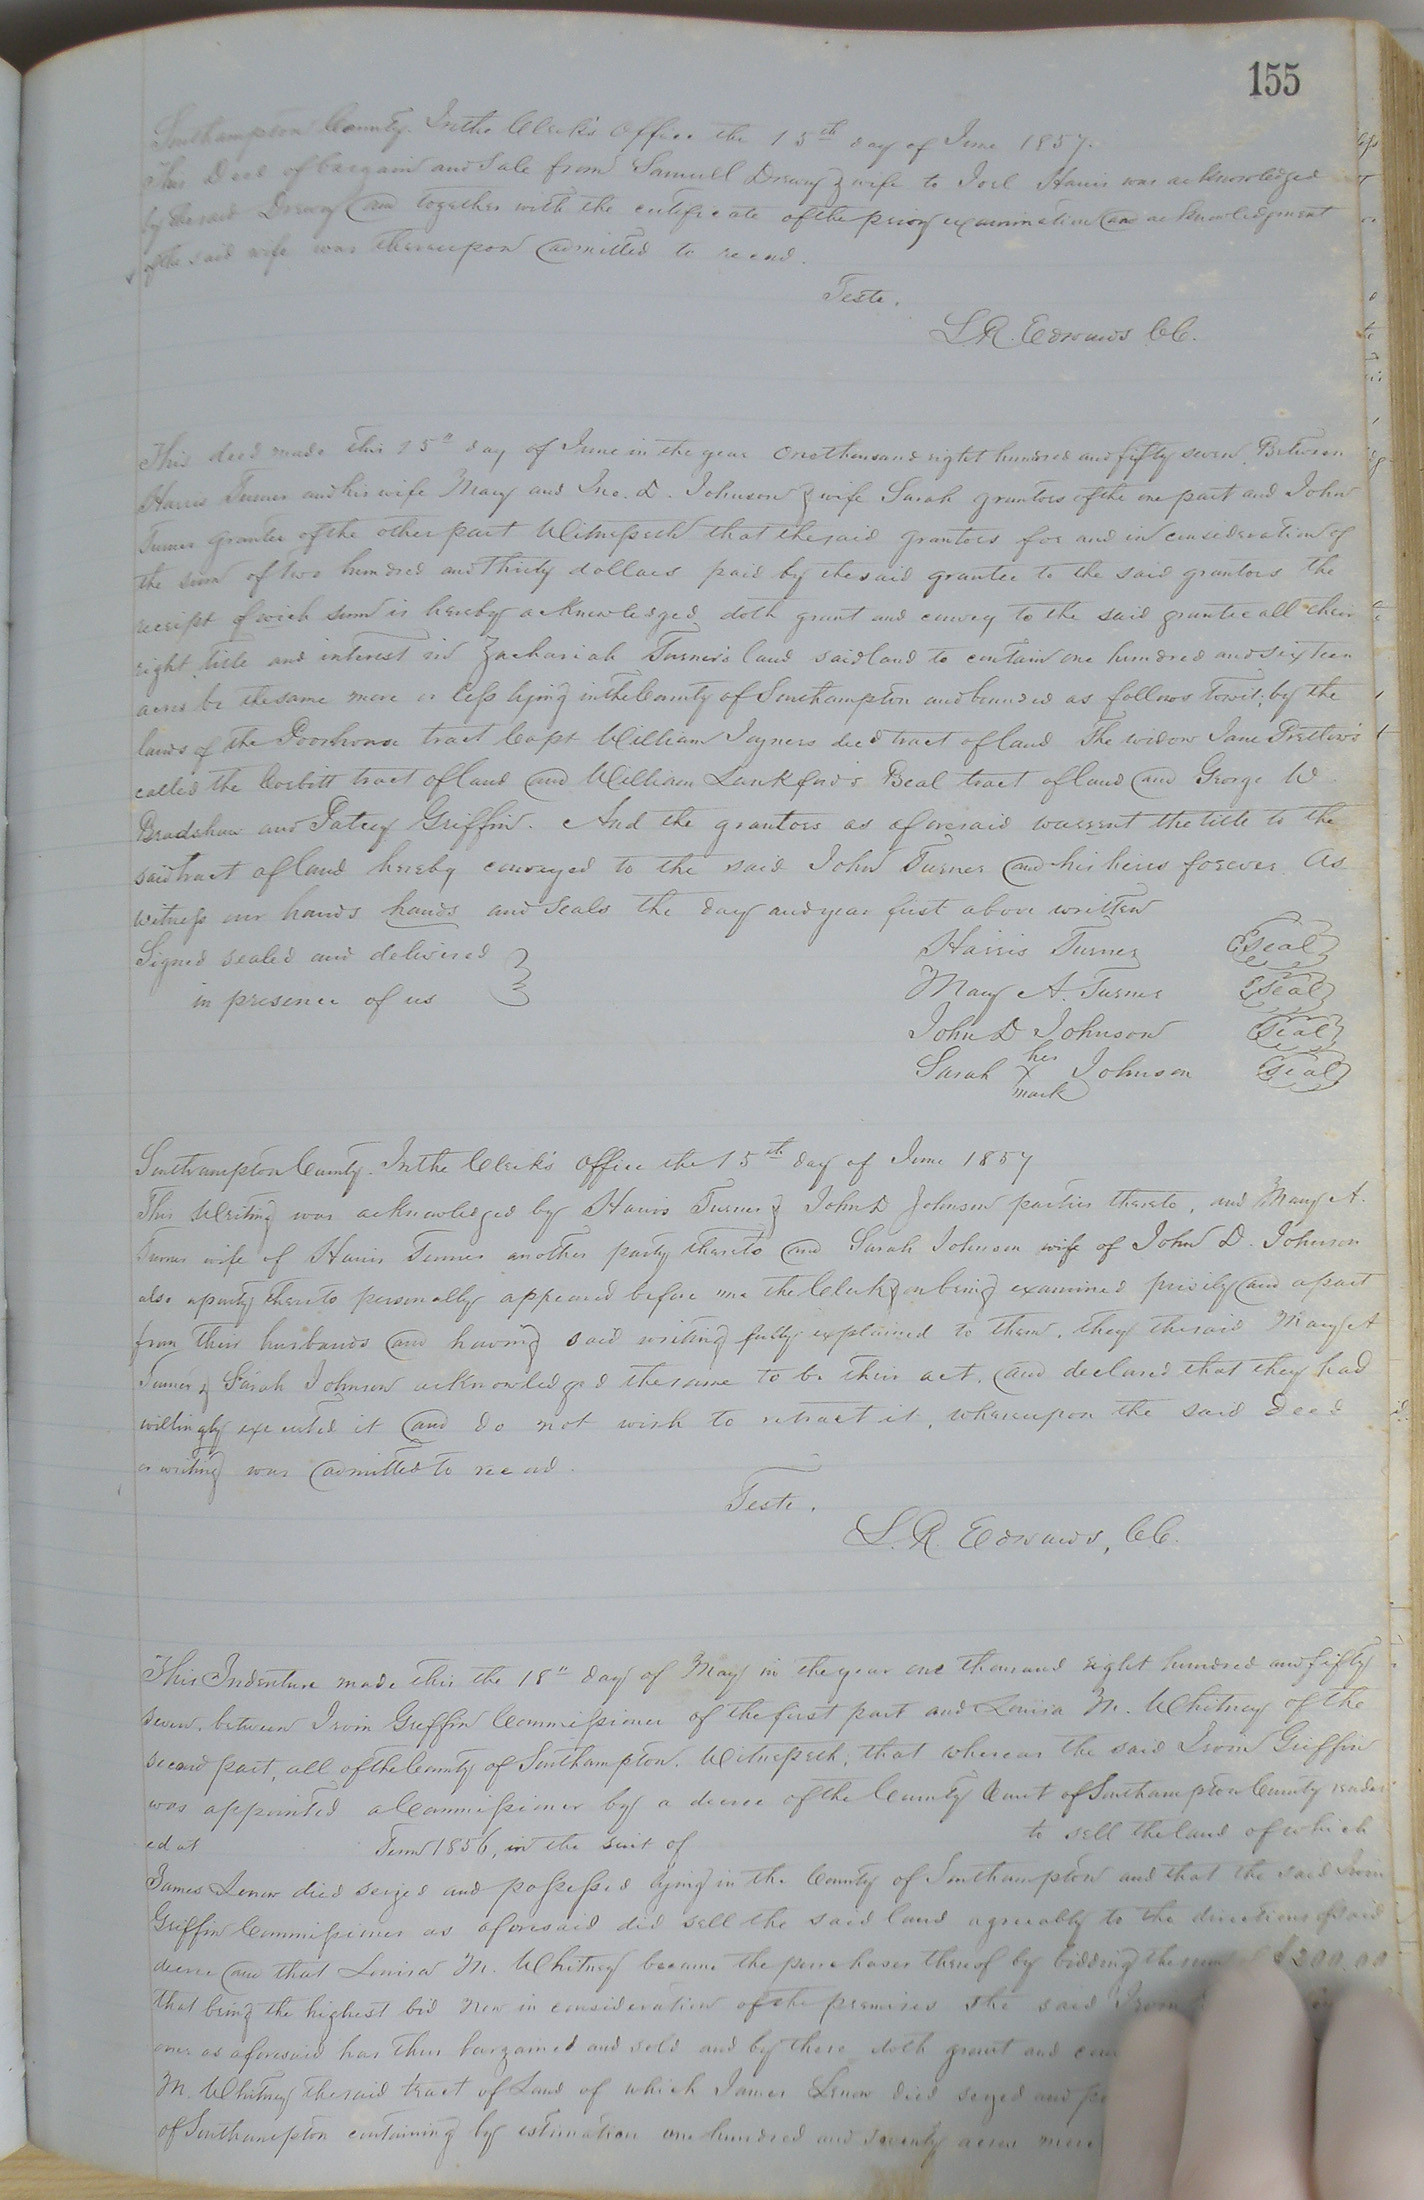 155
Southampton County. In the Clerk's Office the 15th day of June 1857.
This Deed of bargain and Sale from Samuel Drewry & wife to Joel Harris was acknowledged
by the said Drewry and together with the certificate of the privy examination and acknowledgment
of the said wife was thereupon admitted to record.
Teste.
L. R. Edwards C.C.
This deed made this 15" day of June in the year one thousand eight hundred and fifty seven. Between
Harris Turner and his wife Mary and Jno. D. Johnson & wife Sarah grantors of the one part and John
Turner grantee of the other part Witnesseth that the said grantors for and in consideration of
the sum of two hundred and Thirty dollars paid by the said grantee to the said grantors the
receipt of wich sum is hereby acknowledged doth grant and convey to the said grantee all their
right, title and interest in Zachariah Turner's land said land to contain one hundred and sixteen
acres be the same more or less lying in the County of Southampton and bounded as follows Towit; by the
lands of the Poorhouse tract Capt William Joyners decd tract of land The widow Jane Pretlow's
called the Corbitt tract of land and William Lankford's Beal tract of land and George W.
Bradshaw and Patsey Griffin. And the grantors as aforesaid warrent the title to the
said tract of land hereby conveyed to the said John Turner and his heirs forever. As
witness our hands hands and Seals the day and year first above written
Signed sealed and delivered
in presence of us
Harris Turner Seal
Mary A. Turner Seal
John D Johnson Seal
Sarah her X mark Johnson Seal
Southampton County. In the Clerk's Office the 15th day of June 1857
This Writing was acknowledged by Harris Turner & John D Johnson parties thereto, and Mary A.
Turner wife of Harris Turner another party thereto and Sarah Johnson wife of John D. Johnson
also a party thereto personally appeared before me the Clerk & on being examined privily and apart
from their husbands and having said writing fully explained to them, they the said Mary A
Turner & Sarah Johnson acknowledged the same to be their act, and declared that they had
willingly executed it and do not wish to retract it, whereupon the said Deed
or writing was admitted to record.
Teste.
L. R. Edwards, C.C.
This Indenture made this the 18" day of May in the year one thousand eight hundred and fifty
seven, between Irvin Griffin Commissioner of the first part and Louisa M. Whitney of the
second part, all of the County of Southampton. Witnesseth, that whereas the said Irvin Griffin
was appointed a Commissioner by a decree of the County Court of Southampton County render
ed at Term 1856, in the suit of to sell the land of which
James Lenow died seized and possessed lying in the County of Southampton and that the said Irvin
Griffin Commissioner as aforesaid did sell the said land agreeably to the directions of said
decree and that Louisa M. Whitney became the purchaser thereof by bidding the sum of $200.00
that being the highest bid Now in consideration of the premises the said Irvin
oner as aforesaid has thus bargained and sold and by these doth grant and
M. Whitney the said tract of Land of which James Lenow died seized and
of Southampton containing by estimation one hundred and seventy acres more